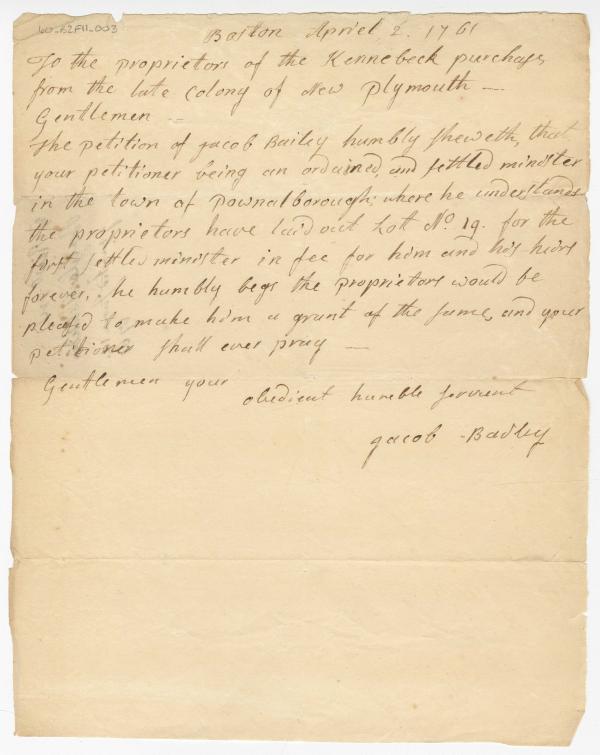 60-B2F11-003
Boston Apriel 2. 1761
To the proprietors of the Kennebeck purchase
from the late Colony of New Plymouth —
Gentlemen —
The petition of Jacob Bailey humbly sheweth, that
your petitioner being an ordained, and settled minister
in the town of Pownalborough; where he understands
the proprietors have laid out Lott No. 19. for the
first settled minister in fee for him and his heirs
forever, he humbly begs the proprietors would be
pleased to make him a grant of the same, and your
petitioner shall ever pray —
Gentlemen your
obedient humble servant
Jacob Bailey